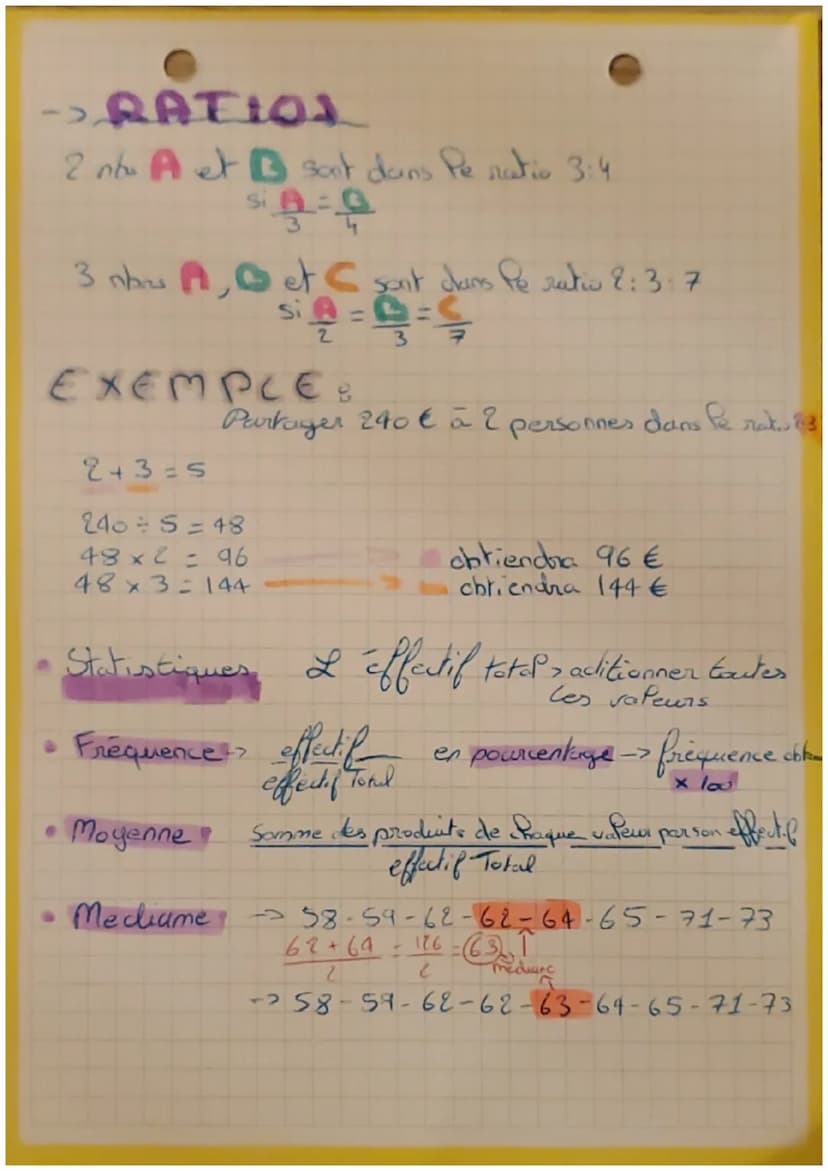 -> RATIOS
2 nbs A et B sont dans le ratio 3:4
si A/3 = B/4
3 nbres A, B et C sont dans le ratio 2:3:7
si A/2 = B/3 = C/7
EXEMPLE :
Partager 240 € à 2 personnes dans le ratio 2:3
2 + 3 = 5
240 ÷ 5 = 48
48 x 2 = 96 obtiendra 96 €
48 x 3 = 144 obtiendra 144 €
• Statistiques L'éffectif total > aditionner toutes
les valeurs
• Fréquence -> effectif / effectif Total en pourcentage -> fréquence
x 100
• Moyenne : Somme des produits de chaque valeur par son effectif
effectif Total
• Mediame : -> 58 - 59 - 62 - 62 - 64 - 65 - 71 - 73
62 + 64 / 2 = 126 / 2 = 63
médiane
-> 58 - 59 - 62 - 62 - 63 - 64 - 65 - 71 - 73